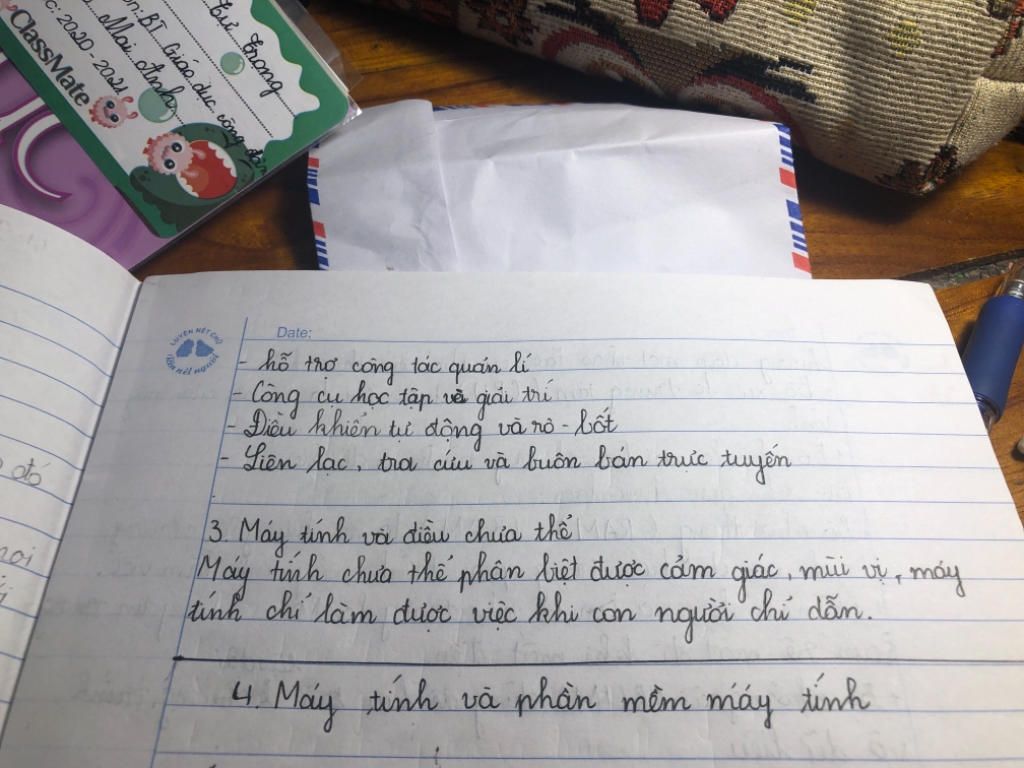 Tư Trọng
BT Giáo dục công dân
Mai Anh
c: 2020 - 2021
ClassMate
LUYỆN NÉT CHỮ
Rèn nết người
Date:
- hỗ trợ công tác quản lí
- Công cụ học tập và giải trí
- Điều khiển tự động và rô - bốt
- Liên lạc, tra cứu và buôn bán trực tuyến
3. Máy tính và điều chưa thể
Máy tính chưa thể phân biệt được cảm giác, mùi vị, máy
tính chỉ làm được việc khi con người chỉ dẫn.
4. Máy tính và phần mềm máy tính
đó